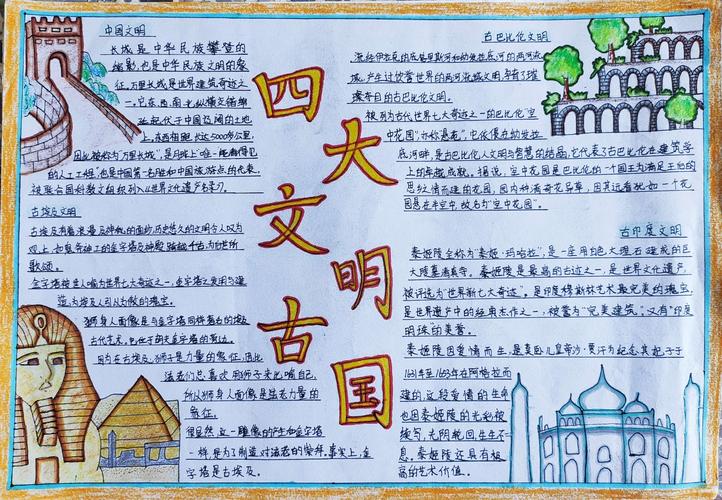 四大文明古国
中国文明
长城是中华民族攀登的
缩影,也是中华民族文明的象
征。万里长城是世界建筑奇迹之
一。它在西、南
张起伏于中国辽阔的土地
上,东西相距长达5000多公里,
因此被称为"万里长城",是月球上"唯一能看得见
的人工工程",也是中国第一名胜和中国旅游点的代表,
被联合国科教文组织列入《世界文化遗产名录》。
古埃及文明
古埃及有着浪漫及神秘的面纱,历史悠久的文明令人叹为
观止,如鬼斧神工的金字塔及神殿
歌颂。
金字塔被世人喻为世界七大奇迹之一,金字塔之发明与建
造,为埃及人引以为傲的瑰宝。
狮身人面像是与金字塔同样著名的埃及
古代艺术,它位于胡夫金字塔的旁边。
因为在古埃及,狮子是力量的象征,因此
法老们总喜欢用狮子来比喻自己,
所以狮身人面像是法老力量的
象征。
很显然,这一雕像的产生和金字塔
一样,是为了制造对法老的崇拜。事实上,金
字塔是古埃及。
古巴比伦文明
流经伊拉克的底格里斯河和幼发拉底河的两河流
域,产生过饮誉世界的两河流域文明,孕育了璀
璨夺目的古巴比伦文明。
被列为古代世界七大奇迹之一的巴比伦"空
中花园",亦称"悬苑"。它依偎在幼发拉
底河畔,是古巴比伦人文明与智慧的结晶,它代表了古巴比伦在建筑学
上的卓越成就。据说,空中花园是巴比伦的一个国王为满足王后的
思故情而建的花园,园内种满奇花异草,因其远看犹如一个花
园悬在半空中,故名为"空中花园"。
古印度文明
泰姬陵全称为"泰姬·玛哈拉",是一座用白色大理石建成的巨
大陵墓清真寺。泰姬陵是最高的古迹之一,是世界文化遗产,
被评选为"世界新七大奇迹"。是印度穆斯林艺术最完美的瑰宝,
是世界遗产中的经典杰作之一,被誉为"完美建筑",又有"印度
明珠的美誉。
泰姬陵因爱情而生,是莫卧儿皇帝沙·贾汗为纪念其妃子于
1631年至1653年在阿格拉而
建的,这段爱情的生命
也因泰姬陵的光彩被
续写,光阴轮回,生生不
息。泰姬陵还具有极
高的艺术价值。